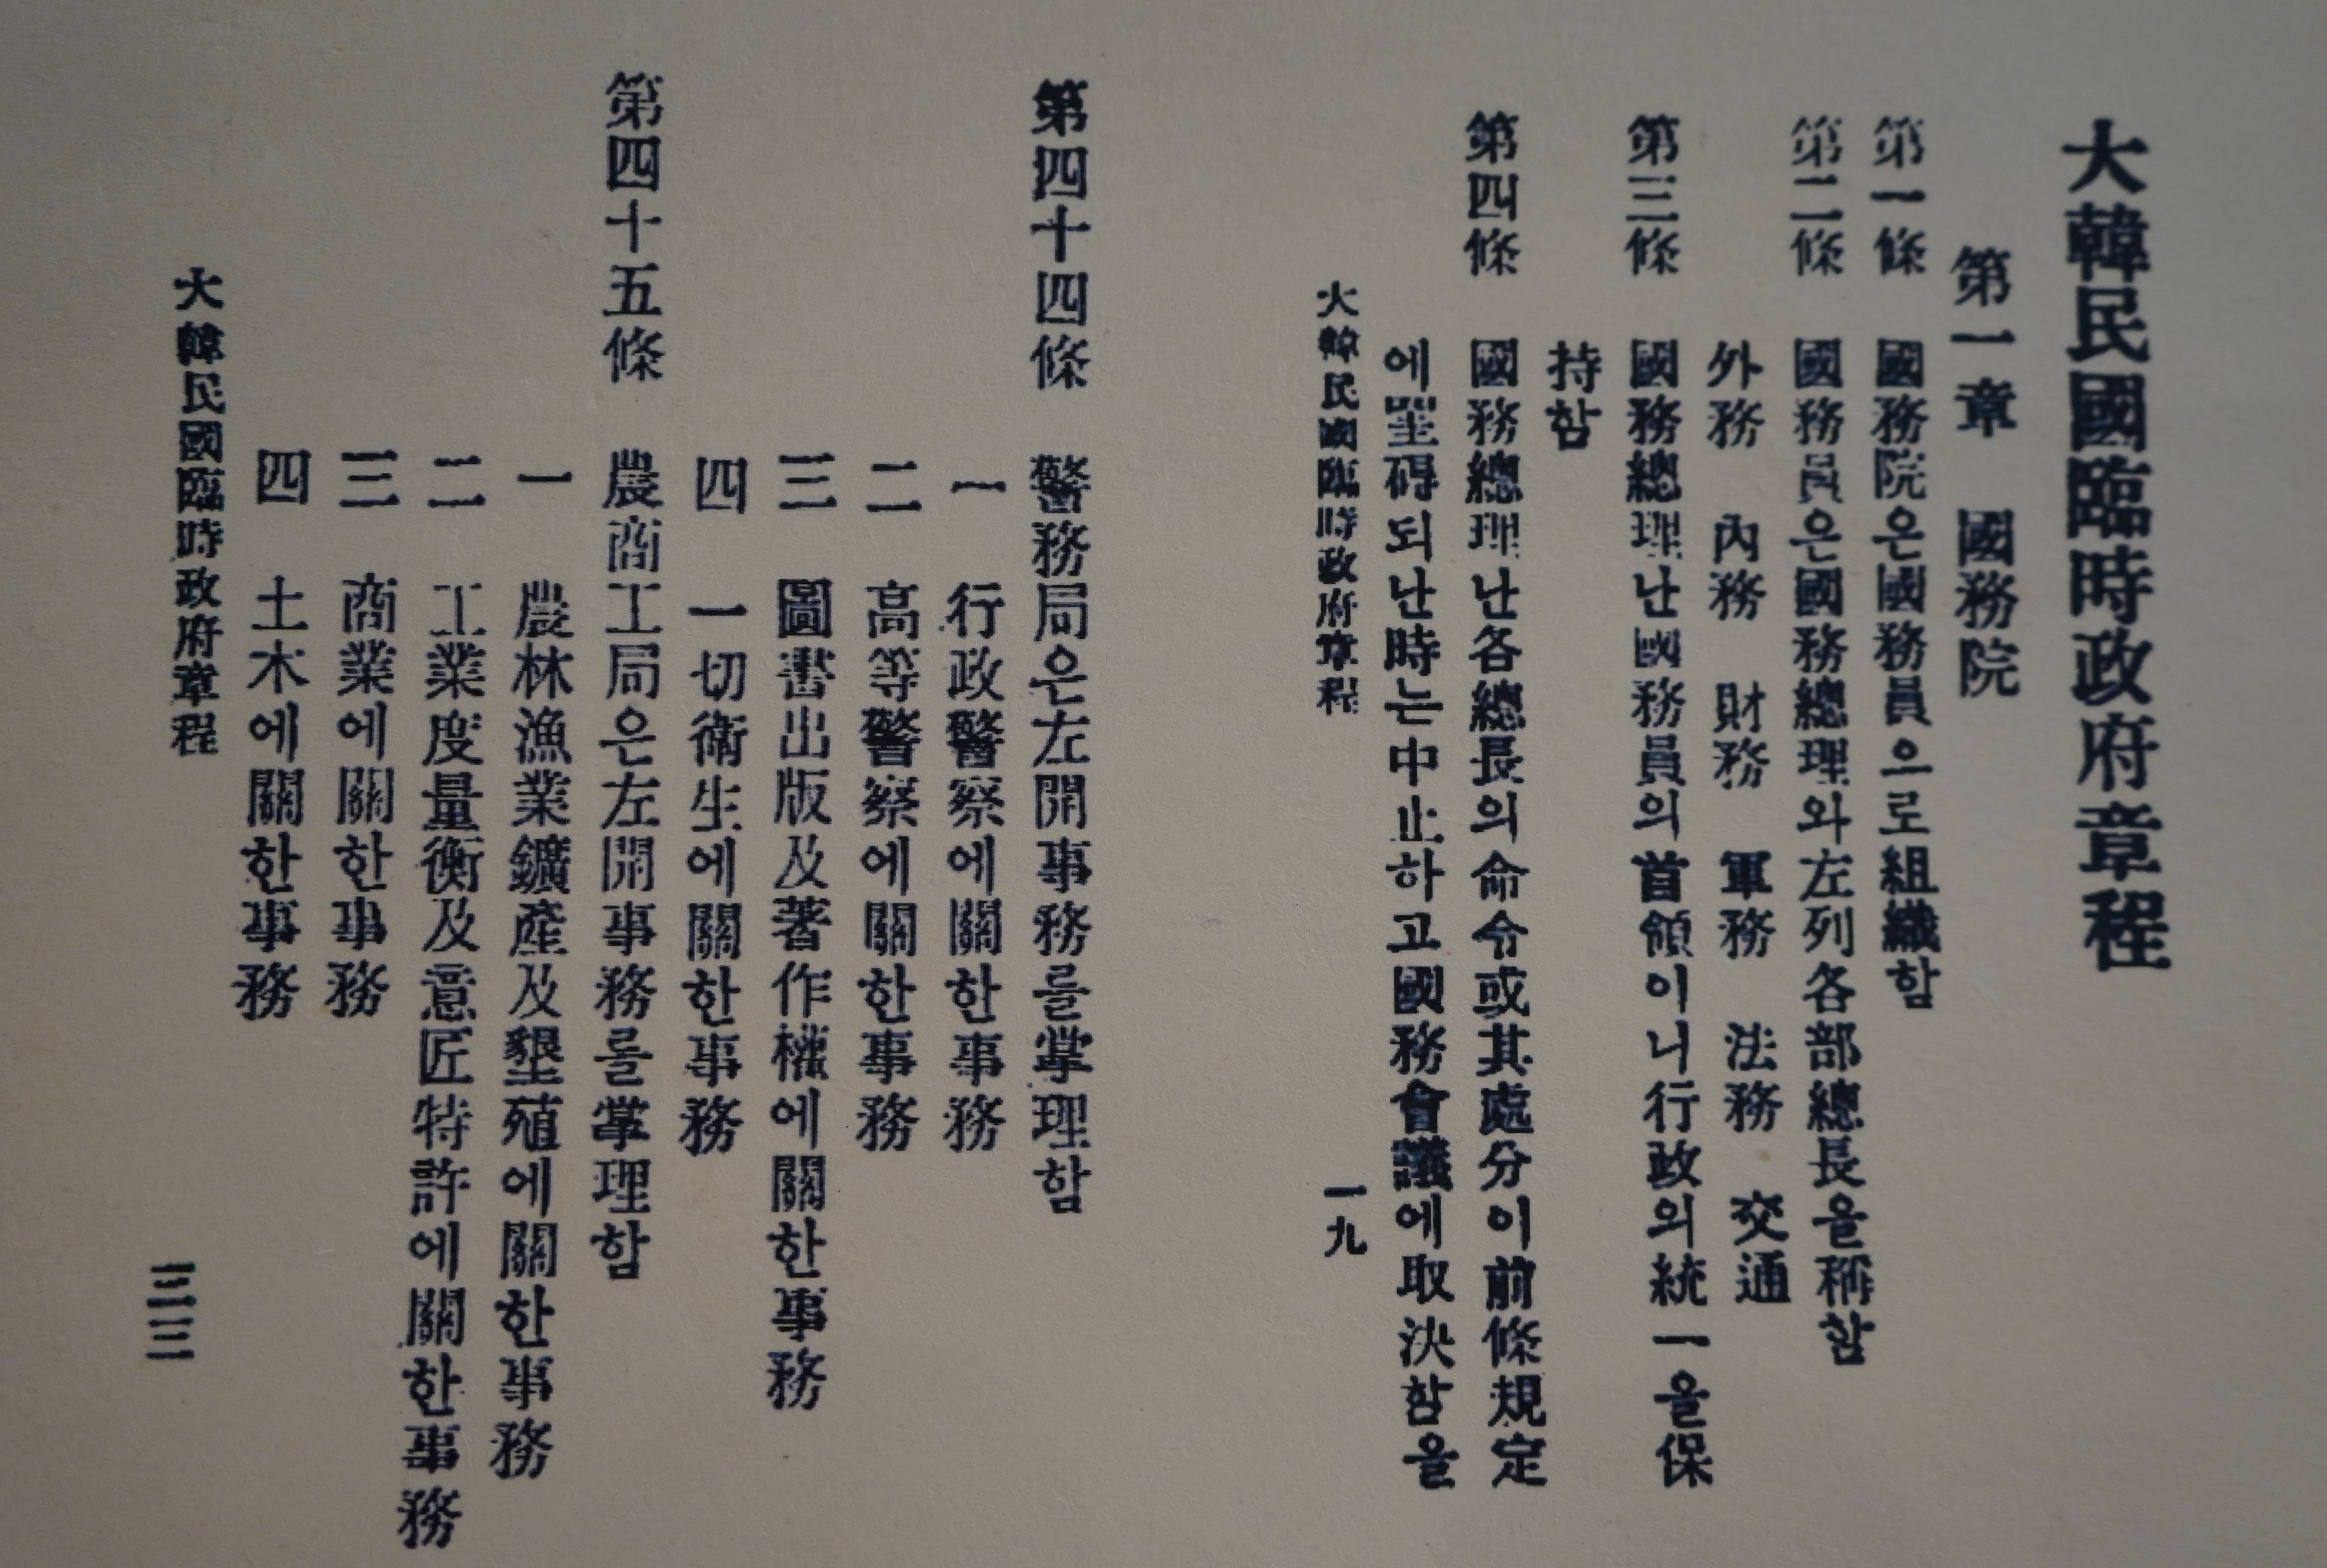 大韓民國臨時政府章程
第一章 國務院
第一條 國務院은國務員으로組織함
第二條 國務員은國務總理와左列各部總長을稱함
外務 內務 財務 軍務 法務 交通
第三條 國務總理난國務員의首領이니行政의統一을保
持함
第四條 國務總理난各總長의命令或其處分이前條規定
에罣碍되난時는中止하고國務會議에取決함을
大韓民國臨時政府章程 一九
第四十四條 警務局은左開事務를掌理함
一 行政警察에關한事務
二 高等警察에關한事務
三 圖書出版及著作權에關한事務
四 一切衛生에關한事務
第四十五條 農商工局은左開事務를掌理함
一 農林漁業鑛產及墾殖에關한事務
二 工業度量衡及意匠特許에關한事務
三 商業에關한事務
四 土木에關한事務
大韓民國臨時政府章程 三三